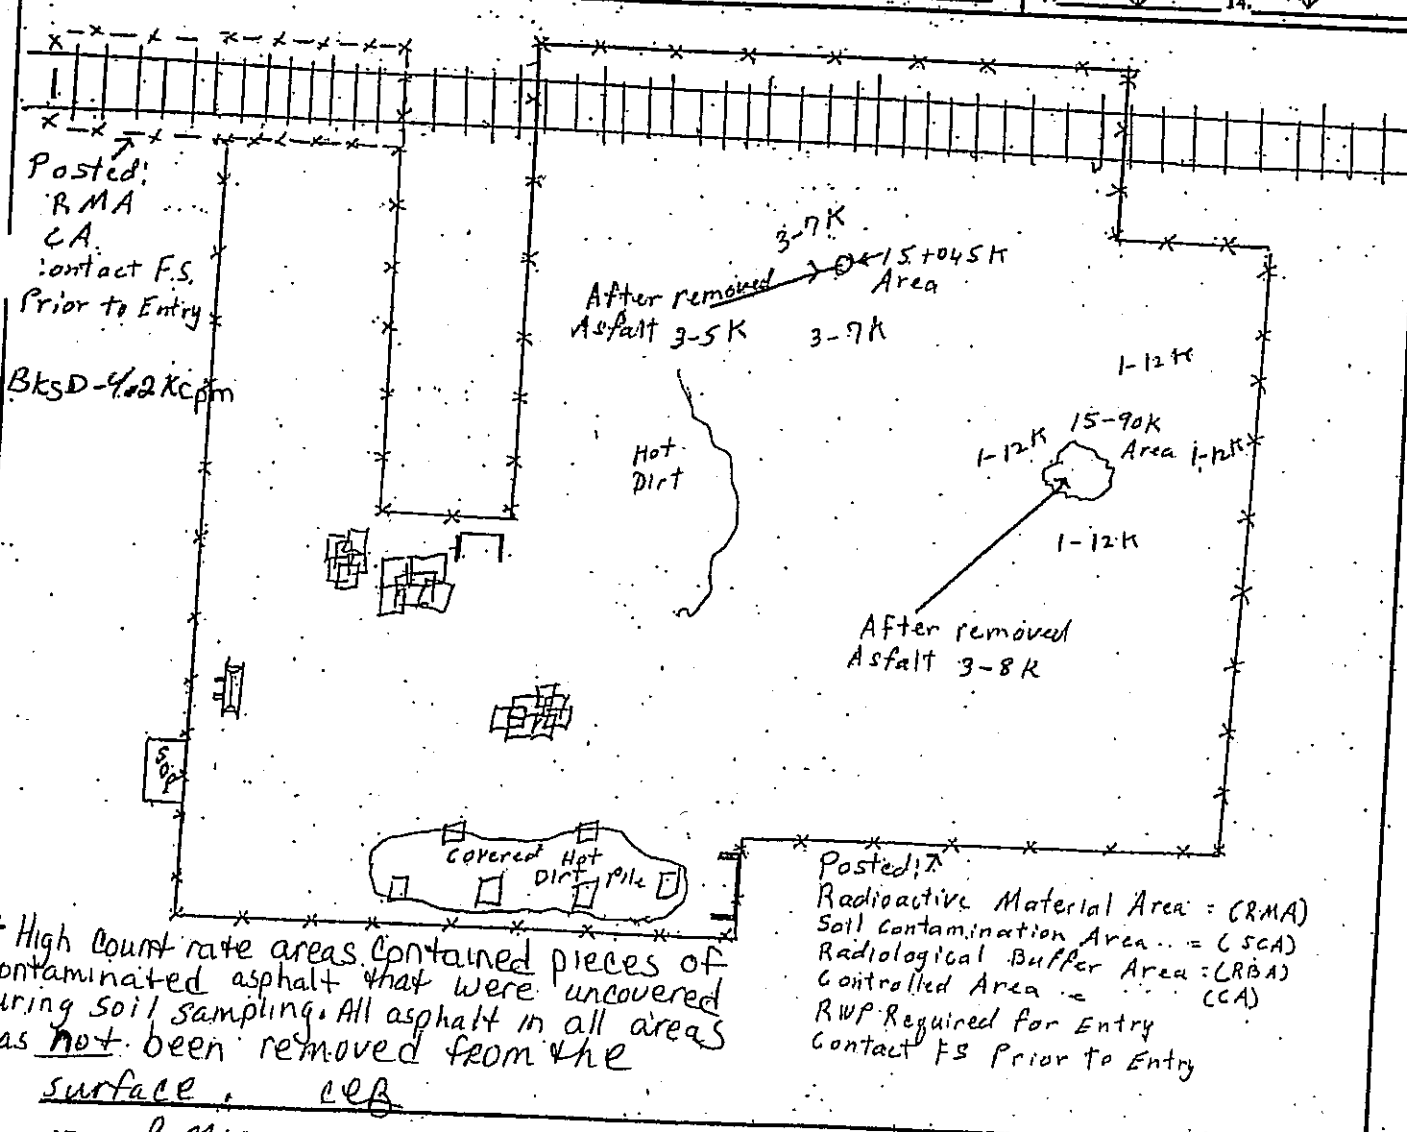 14.
Posted:
RMA
CA.
contact F.S.
Prior to Entry
BKGD-4.2 Kcpm
3-7K
15 to 45 K
Area
After removed
Asfalt 3-5 K
3-7K
Hot
Dirt
1-12 K
15-90K
Area
1-12 K
1-12K
1-12 K
After removed
Asfalt 3-8 K
SOP
Covered Hot
Dirt Pile
Posted:
Radioactive Material Area = (RMA)
Soil Contamination Area = (SCA)
Radiological Buffer Area = (RBA)
Controlled Area = (CA)
RWP Required for Entry
Contact FS Prior to Entry
High Count rate areas contained pieces of
ontaminated asphalt that were uncovered
uring soil sampling. All asphalt in all areas
as not been removed from the
surface.